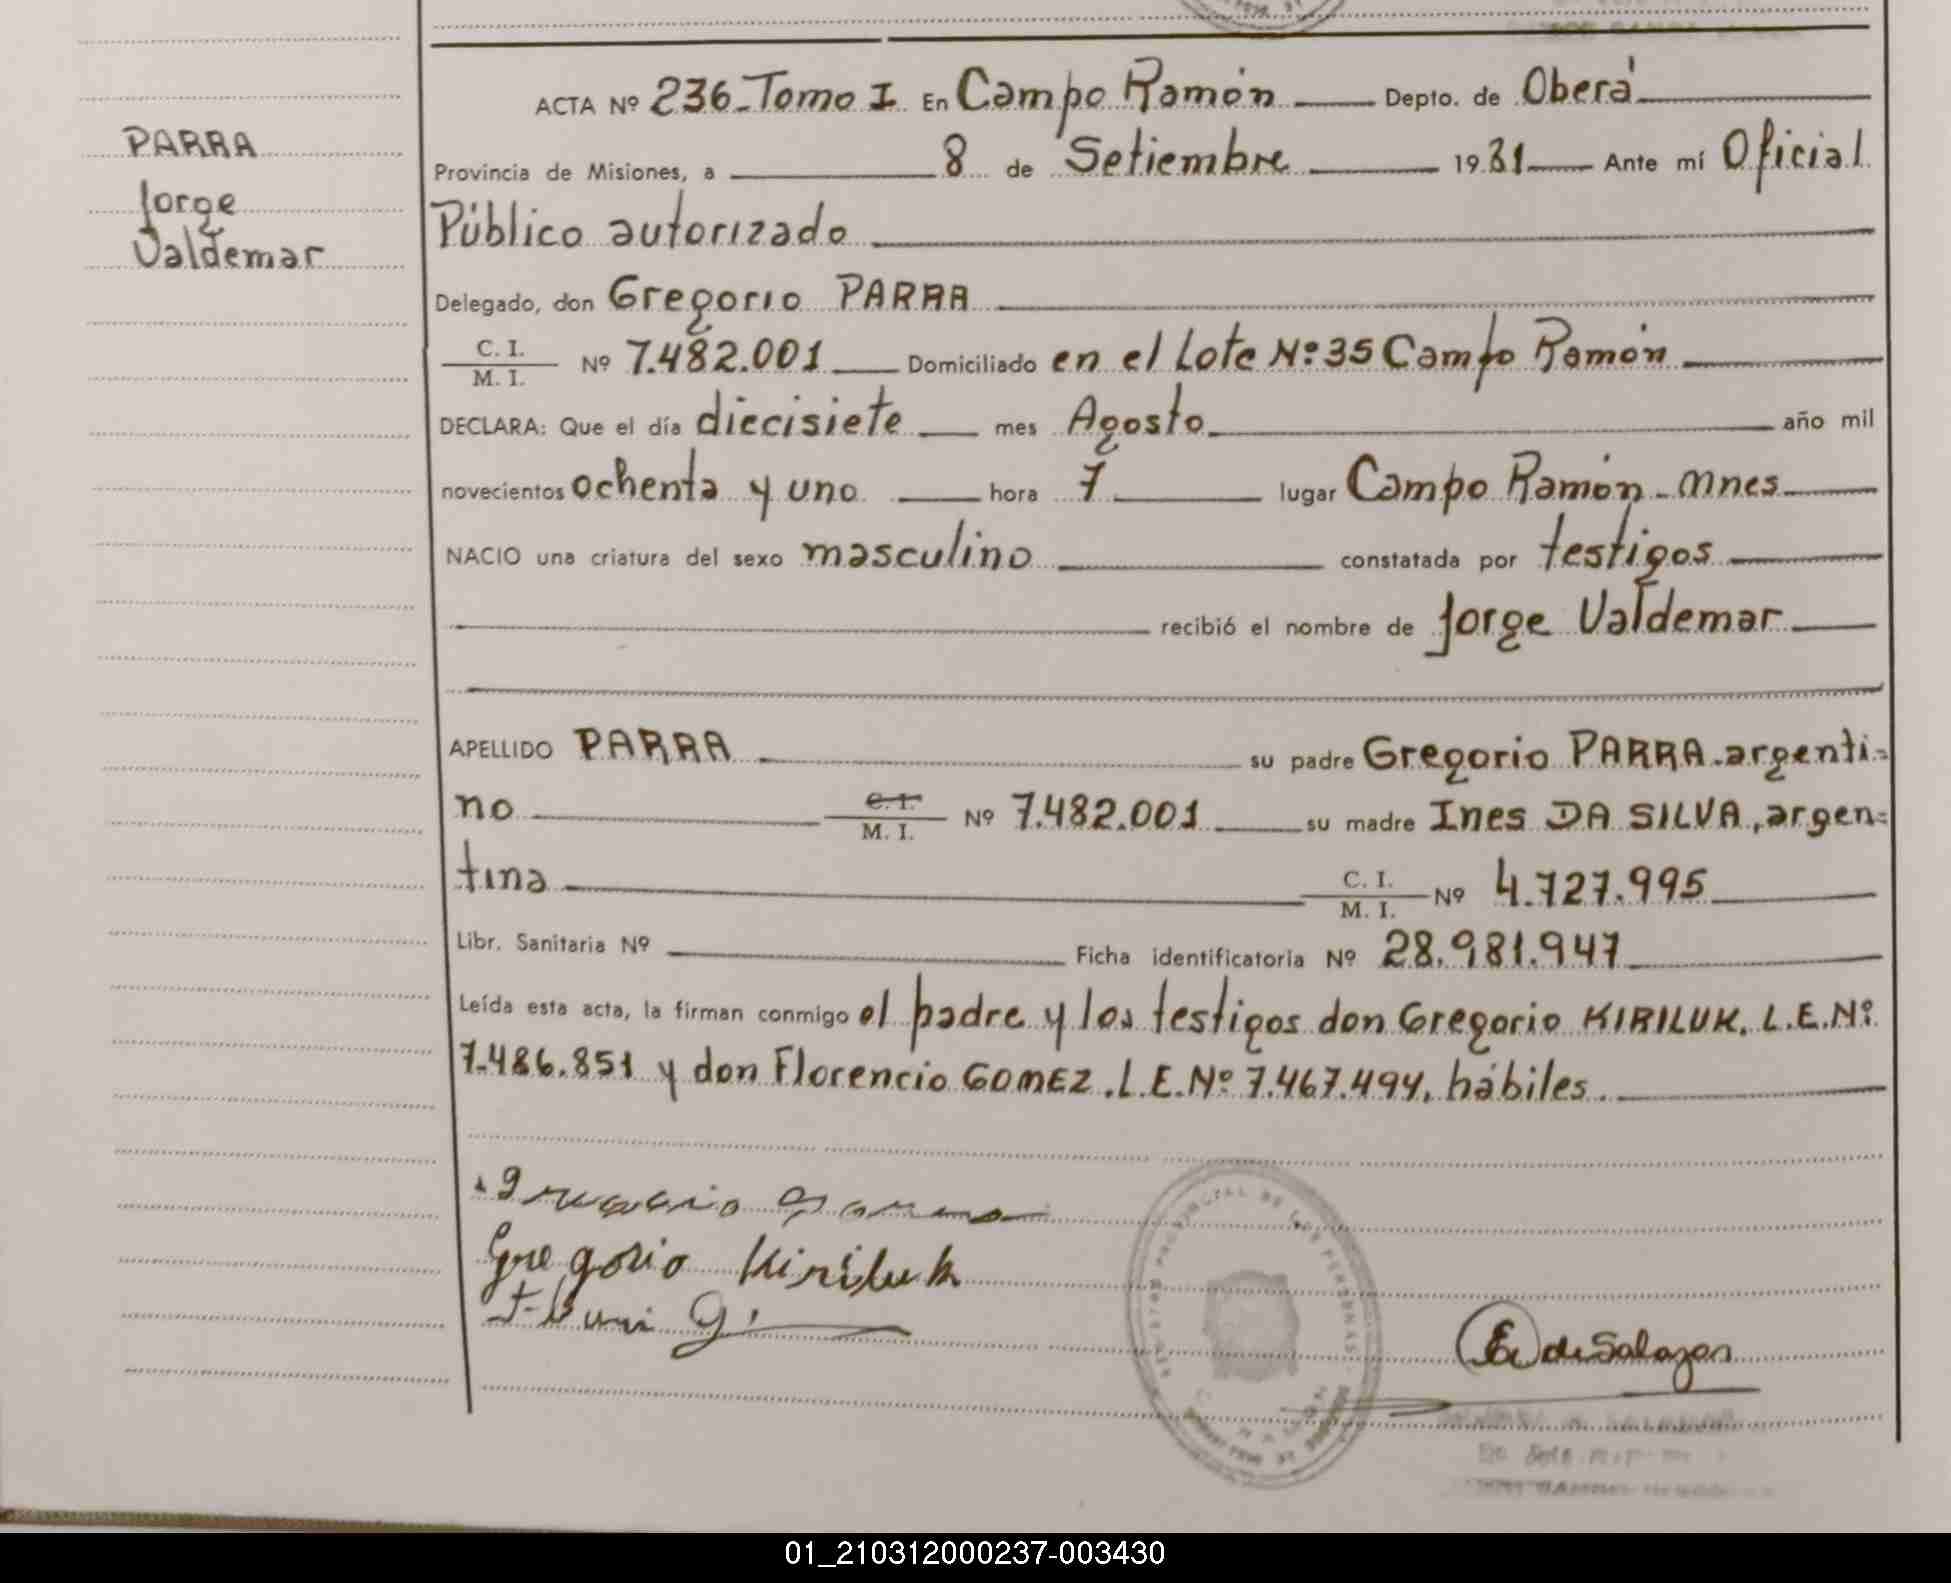 PARRA
Jorge
Valdemar
ACTA Nº 236-Tomo I En Campo Ramón Depto. de Oberá
Provincia de Misiones, a 8 de Setiembre 1981 Ante mí Oficial
Público autorizado
Delegado, don Gregorio PARRA
C. I.
M. I. Nº 7.482.001 Domiciliado en el Lote Nº 35 Campo Ramón
DECLARA: Que el día diecisiete mes Agosto año mil
novecientos ochenta y uno hora 7 lugar Campo Ramón - Mnes
NACIO una criatura del sexo masculino constatada por testigos
recibió el nombre de Jorge Valdemar
APELLIDO PARRA su padre Gregorio PARRA. argenti=
no C. I.
M. I. Nº 7.482.001 su madre Ines DA SILVA, argen=
tina C. I.
M. I. Nº 4.727.995
Libr. Sanitaria Nº Ficha identificatoria Nº 28.981.947
Leída esta acta, la firman conmigo el padre y los testigos don Gregorio KIRILUK. L.E.Nº
7.486.851 y don Florencio GOMEZ. L.E.Nº 7.467.494, hábiles.
Gregorio Kiriluk
de Salazar
01_210312000237-003430